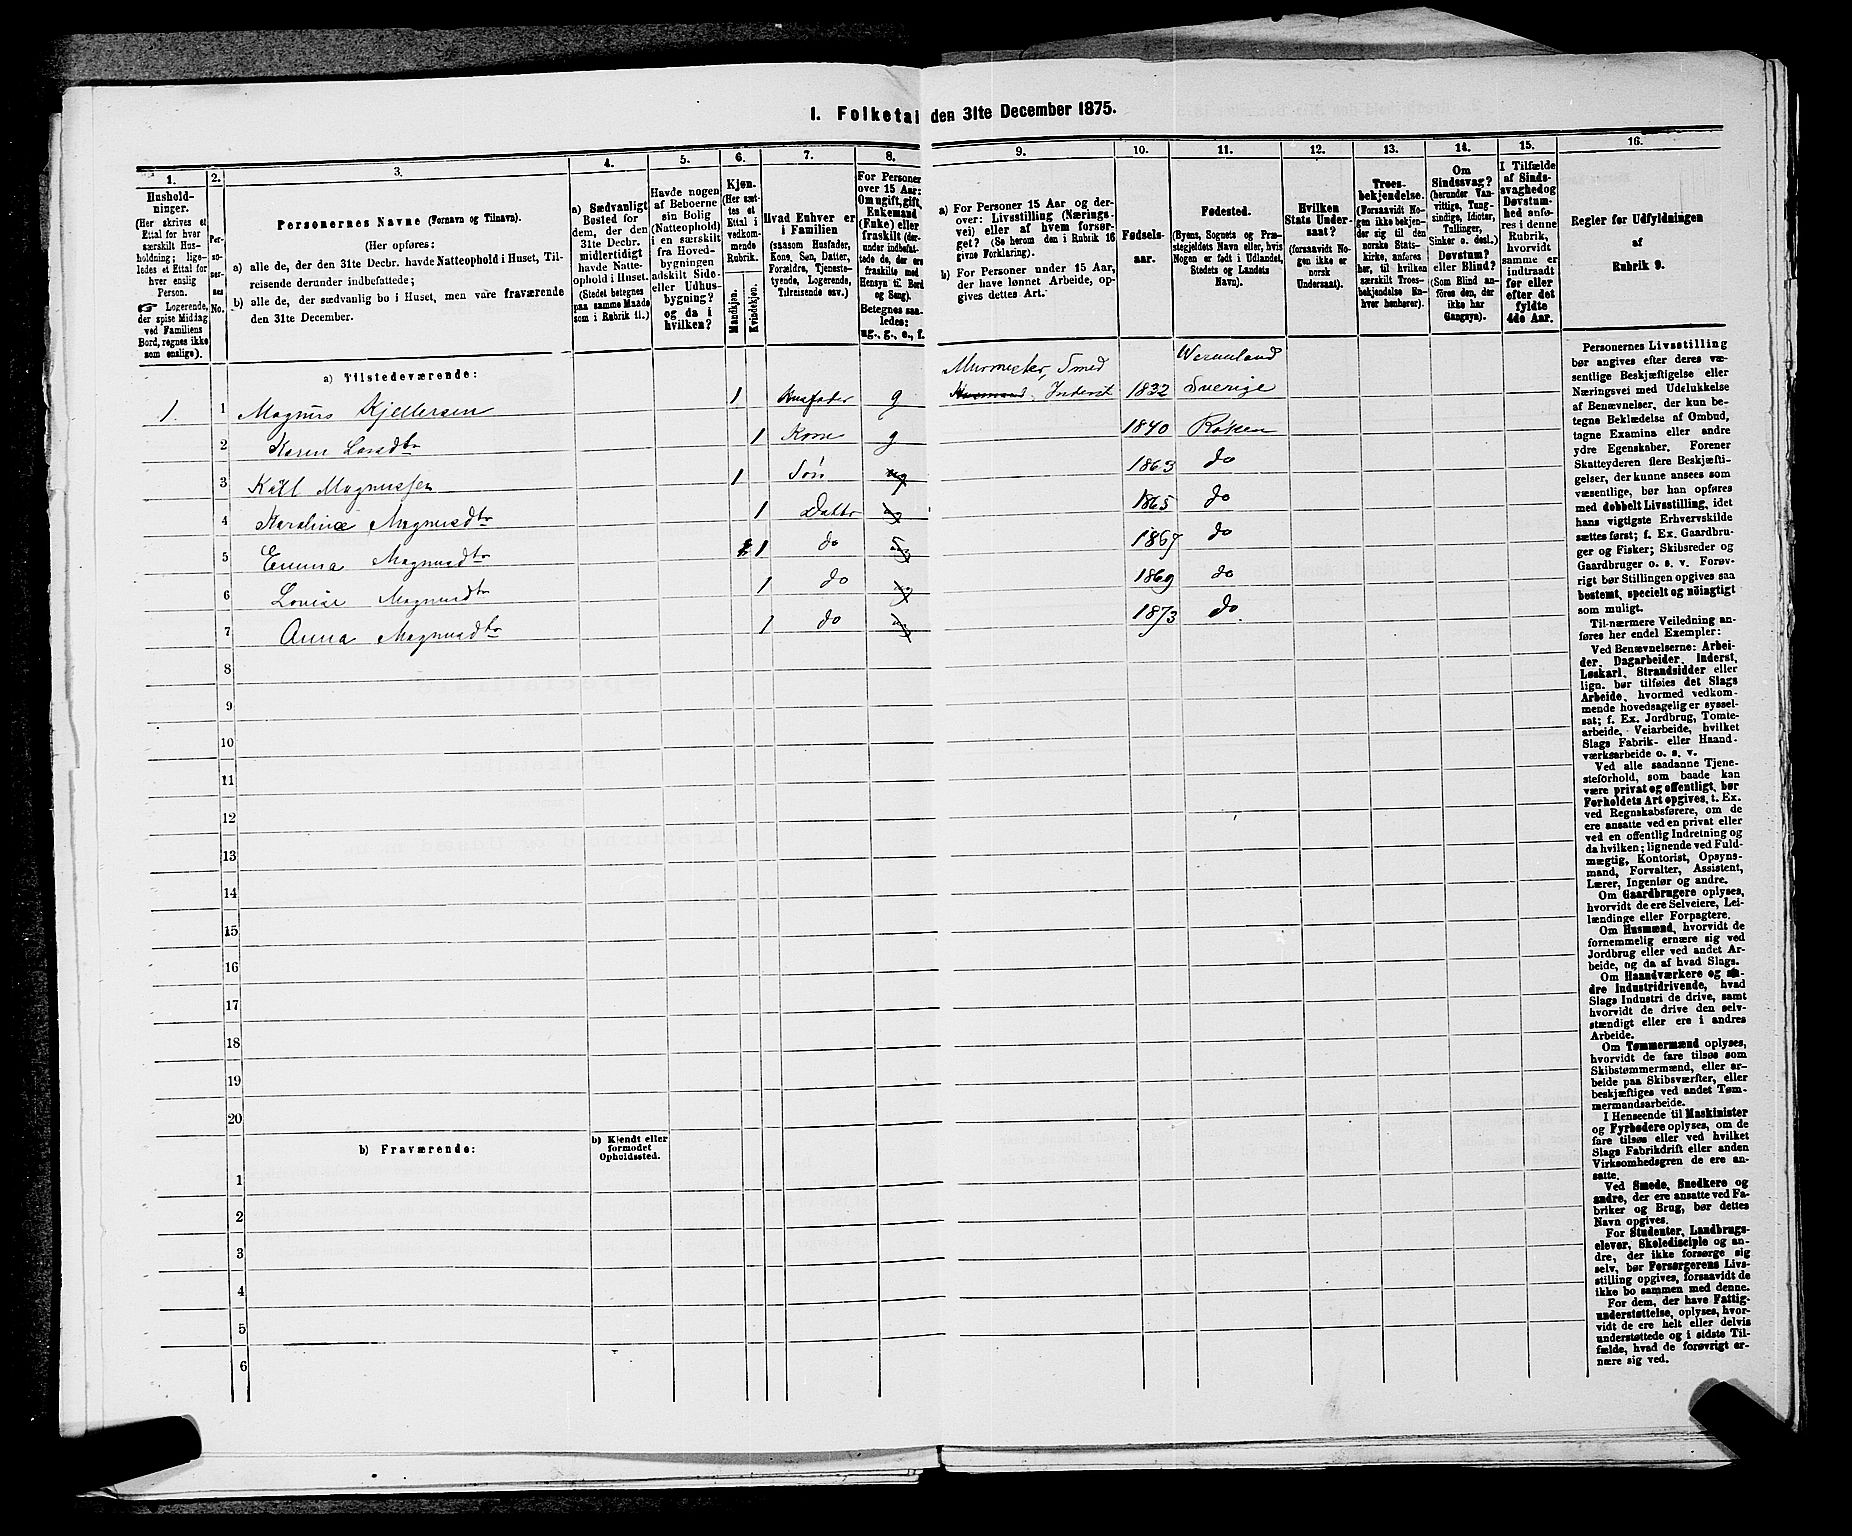 I. Folketal den 31te December 1875.
1. 2. 3. 4. 5. 6. 7. 8. 9. 10. 11. 12. 13. 14. 15. 16.
Hushold-
ninger.
(Her skrives et
Ettal for hver
særskilt Hus-
holdning; lige-
ledes et Ettal for
enslig
Person.
☞ Logerende,
der spise Middag
ved Familiens
Bord, regnes ikke
som enslige).
Per-
so-
ner-
nes
No.
Personernes Navne (Fornavn og Tilnavn).
(Her opføres:
a) alle de, der den 31te Decbr. havde Natteophold i Huset, Til-
reisende derunder indbefattede;
b) alle de, der sædvanlig bo i Huset, men vare fraværende
den 31te December.
a) Sædvanligt
Bosted for
dem, der den
31te Decbr.
midlertidigt
havde Natte-
ophold i Huset.
(Stedet betegnes
paa samme Maade
som i Rubrik 11.)
Havde nogen
af Beboerne
sin Bolig
(Natteophold)
i en særskilt
fra Hoved-
bygningen
adskilt Side-
eller Udhus-
bygning?
og da i
hvilken?
Kjøn.
(Her sæt-
tes et
Ettal i
vedkom-
mende
Rubrik.
Mandkjøn.
Kvindekjøn.
Hvad Enhver er
i Familien
(saasom Husfader,
Kone, Søn, Datter,
Forældre, Tjeneste-
tyende, Logerende,
Tilreisende osv.)
For Personer
over 15 Aar:
Om ugift, gift,
Enkemand
(Enke) eller
fraskilt (der-
under indbefat-
tede de, der ere
fraskilte med
Hensyn til Bord
og Seng).
Betegnes saa-
ledes:
ug., g., e., f.
a) For Personer 15 Aar og der-
over: Livsstilling (Nærings-
vei) eller af hvem forsør-
get? (Se herom den i Rubrik 16
givne Forklaring).
b) For Personer under 15 Aar,
der have lønnet Arbeide, op-
gives dettes Art.
Fødsels-
aar.
Fødested.
(Byens, Sognets og Præ-
stegjeldets Navn eller, hvis
Nogen er født i Udlandet,
Stedets og Landets
Navn).
Hvilken
Stats Under-
saat?
(forsaavidt No-
gen ikke er
norsk
Undersaat).
Troes-
bekjendelse.
(Forsaavidt No-
gen ikke bekjen-
der sig til den
norske Stats-
kirke, anføres
her, til hvilken
særskilt Troes-
bekjendelse En-
hver henhører).
Om
Sindssvag?
(herunder Van-
vittige, Tung-
sindige, Idioter,
Tullinger,
Sinker o. desl.)
Døvstum?
eller Blind?
(Som Blind an-
føres den, der
ikke har
Gangsyn).
I Tilfælde
af Sinds-
svaghed og
Døvstum-
hed anfø-
res i denne
Rubrik,
hvorvidt
samme er
indtraadt
før eller
efter det
fyldte
4de Aar.
Regler for Udfyldningen
af
Rubrik 9.
a) Tilstedeværende:
Murmester, Smed Wermland
1. 1 Magnus Kjellersen 1 Husfader g Husmand, Inderst 1832 Sverige
2 Karen Larsdtr 1 Kone g 1840 Røken
3 Karl Magnussen 1 Søn ug 1863 do
4 Karoline Magnusdtr 1 Dattr ug 1865 do
5 Emma Magnusdtr 1 do ug 1867 do
6 Lovise Magnusdtr 1 do ug 1869 do
7 Anna Magnusdtr 1 do ug 1873 do.
8
9
10
11
12
13
14
15
16
17
18
19
20
b) Fraværende:
b) Kjendt eller
formodet
Opholdssted.
1
2
3
4
5
6
Personernes Livsstilling
bør angives efter deres væ-
sentlige Beskjæftigelse eller
Næringsvei med Udelukkelse
af Benævnelser, der kun be-
tegne Beklædelse af Ombud,
tagne Examina eller andre
ydre Egenskaber. Forener
Skatteyderen flere Beskjæfti-
gelser, der kunne ansees som
væsentlige, bør han opføres
med dobbelt Livsstilling, idet
hans vigtigste Erhvervskilde
sættes først; f. Ex. Gaardbru-
ger og Fisker; Skibsreder og
Gaardbruger o. s. v. Forøv-
rigt bør Stillingen opgives saa
bestemt, specielt og nøiagtigt
som muligt.
Til nærmere Veiledning an-
føres her endel Exempler:
Ved Benævnelserne: Arbei-
der, Dagarbeider, Inderst,
Løskarl, Strandsidder eller
lign. bør tilføies det Slags
Arbeide, hvormed vedkom-
mende hovedsagelig er syssel-
sat; f. Ex. Jordbrug, Tomte-
arbeide, Veiarbeide, hvilket
Slags Fabrik- eller Haand-
værksarbeide o. s. v.
Ved alle saadanne Tjene-
steforhold, som baade kan
være privat og offentligt, bør
Forholdets Art opgives, t. Ex.
ved Regnskabsførere, om de
ere ansatte ved en privat eller
ved en offentlig Indretning og
da hvilken; lignende ved Fuld-
mægtig, Kontorist, Opsyns-
mand, Forvalter, Assistent,
Lærer, Ingeniør og andre.
Om Gaardbrugere oplyses,
hvorvidt de ere Selveiere, Lei-
lændinge eller Forpagtere.
Om Husmænd, hvorvidt de
fornemmelig ernære sig ved
Jordbrug eller ved andet Ar-
beide, og da af hvad Slags.
Om Haandværkere og an-
dre Industridrivende, hvad
Slags Industri de drive, samt
hvorvidt de drive den selv-
stændigt eller ere i andres
Arbeide.
Om Tømmermænd oplyses,
hvorvidt de fare tilsøs som
Skibstømmermænd, eller ar-
beide paa Skibsværfter, eller
beskjæftiges ved andet Tøm-
mermandsarbeide.
I Henseende til Maskinister
og Fyrbødere oplyses, om de
fare tilsøs eller ved hvilket
Slags Fabrikdrift eller anden
Virksomhedsgren de ere an-
satte.
Ved Smede, Snedkere og
andre, der ere ansatte ved Fa-
briker og Brug, bør dettes
Navn opgives.
For Studenter, Landbrugs-
elever, Skoledisciple og an-
dre, der ikke forsørge sig
selv, bør Forsørgerens Livs-
stilling opgives, forsaavidt de
ikke bo sammen med denne.
For dem, der have Fattig-
understøttelse, oplyses, hvor-
vidt de ere helt eller delvis
understøttede og i sidste Til-
fælde, hvad de forøvrigt er-
nære sig ved.